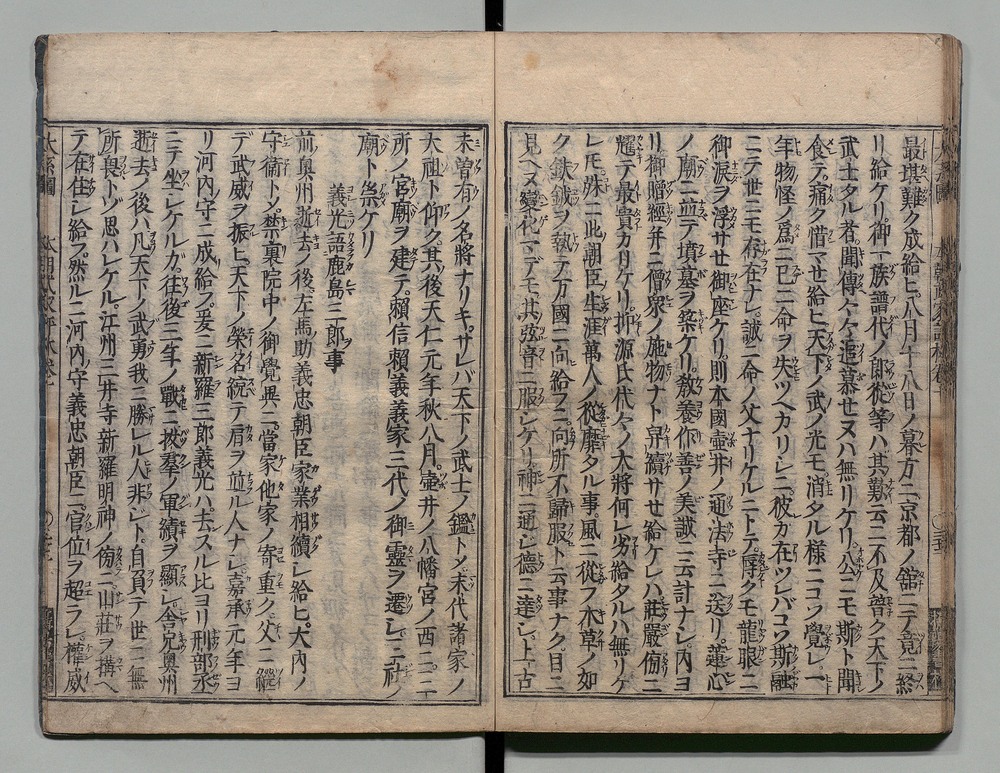 最堪難ク成給ヒ八月十八日ノ暮方ニ京都ノ舘ニテ竟ニ終
リ給ケリ御一族譜代ノ郎從等ハ其歎云ニ不及普ク天下ノ
武士タル者聞傳ヘ々々追慕セヌハ無リケリ公ニモ斯ト聞
食テ痛ク惜マセ給ヒ天下ノ武ノ光モ消タル様ニコソ覺レ一
年物怪ノ爲ニ已ニ命ヲ失ツヘカリシニ彼カ在ツレバコソ斯
ニテ世ニモ存在ナレ誠ニ命ノ父ナリケルニトテ辱クモ龍眼ニ
御淚ヲ浮サセ御座ケリ則本國壷井ノ通法寺ニ送リ蓮心
ノ廟ニ並テ墳墓ヲ築ケリ敎養作善ノ美誠ニ云計ナシ内ヨ
リ御贈經并ニ僧衆ノ施物ナト舁續サセ給ケレハ莊嚴傍ニ
耀テ最貴カリケリ抑源氏代々ノ大將何レ劣給タルハ無リケ
レモ殊ニ此朝臣生涯萬人ノ從靡タル事風ニ從フ木草ノ如
ク鈇鉞ヲ執テ万國ニ向給フニ向所不歸服ト云事ナク目ニ
見ヘヌ變化マデモ其弦音ニ服シケリ神ニ通シ德ニ達シ上古
未曾有ノ名將ナリキサレバ天下ノ武士ノ鑑トメ末代諸家ノ
大祖ト仰ク其後天仁元年秋八月壷井ノ八幡宮ノ西ニ二
所ノ宮廟ヲ建テ賴信賴義義家三代ノ御靈ヲ遷シ二社ノ
廟ト祟ケリ
義光語鹿島三郎事
前奥州逝去ノ後左馬助義忠朝臣家業相續シ給ヒ大内ノ
守衞トメ禁裏院中ノ御覺異ニ當家他家ノ寄重ク父ニ繼
デ武威ヲ振ヒ天下ノ榮名統テ肩ヲ並ル人ナシ嘉承元年ヨ
リ河内守ニ成給フ爰ニ新羅三郎義光ハ去スル比ヨリ刑部丞
ニテ坐シケルガ往後三年ノ戰ニ拔羣ノ軍績ヲ顯シ舍兄奥州
逝去ノ後ハ凡天下ノ武勇我ニ勝レル人非シト自負テ世ニ無
所畏トソ思ハレケル江州三井寺新羅明神ノ傍ニ山莊ヲ構ヘ
テ在住シ給フ然ルニ河内守義忠朝臣ニ官位ヲ超ラレ權威